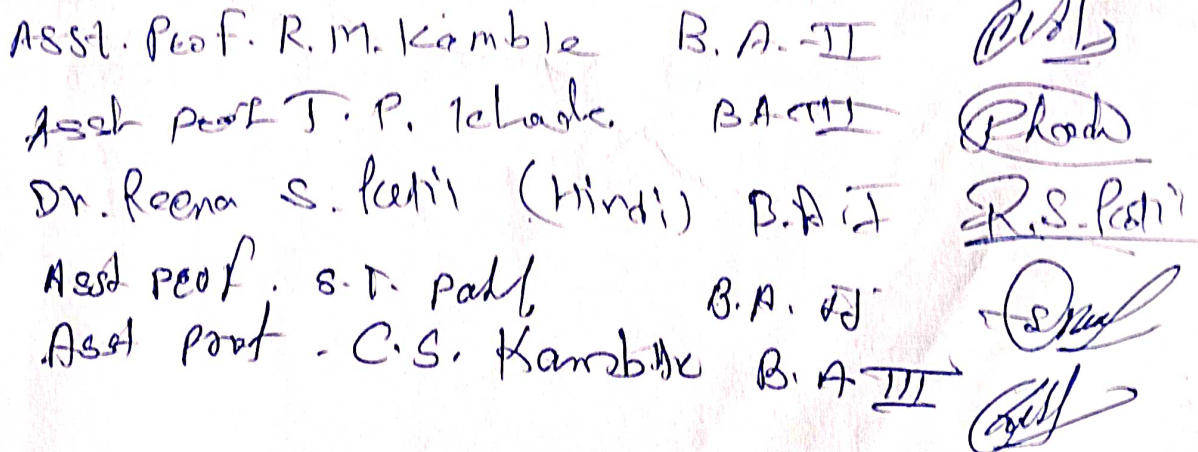 Asst. Prof. R. M. Kamble B. A. - II
Asst prof J. P. Khade. B.A - III
Dr. Reena S. Patil (Hindi) B.A. I R.S. Patil
Asst prof. S. T. Patil B.A. II
Asst prof. C. S. Kamble B. A III